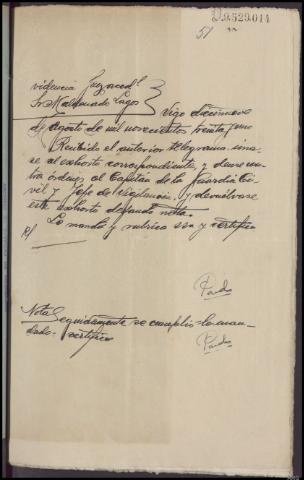 51
videncia Juez acccdl
Sr Maldonado Lagos
Vigo diecinueve
de Agosto de mil novecientos treinta y uno
Recibido el anterior telegrama una-
se al exhorto correspondiente y
al Capitan de la Guardia Ci-
vil y Jefe de Vigilancia y devuélvase
este exhorto dejando nota.
Lo mandó y rubrica ssa y certifico
Pardo
Nota Seguidamente se cumplió lo man-
dado - certifico
Pardo